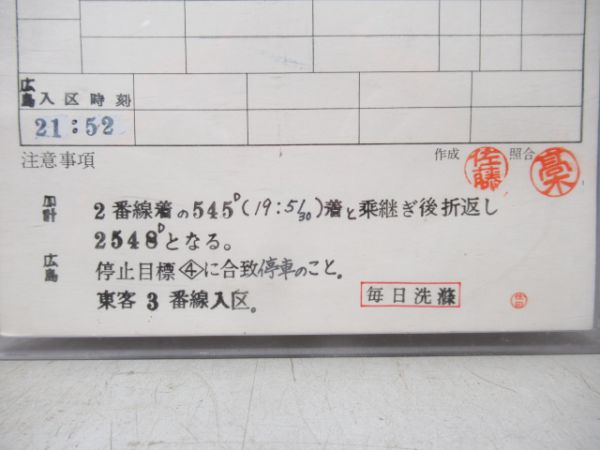 広島 入区時刻
21:52
注意事項
作成 佐藤 照合 高木
加計 2番線着の545D(19:51/30)着と乗継ぎ後折返し
2548Dとなる。
広島 停止目標④に合致停車のこと。
東客3番線入区。
毎日洗滌